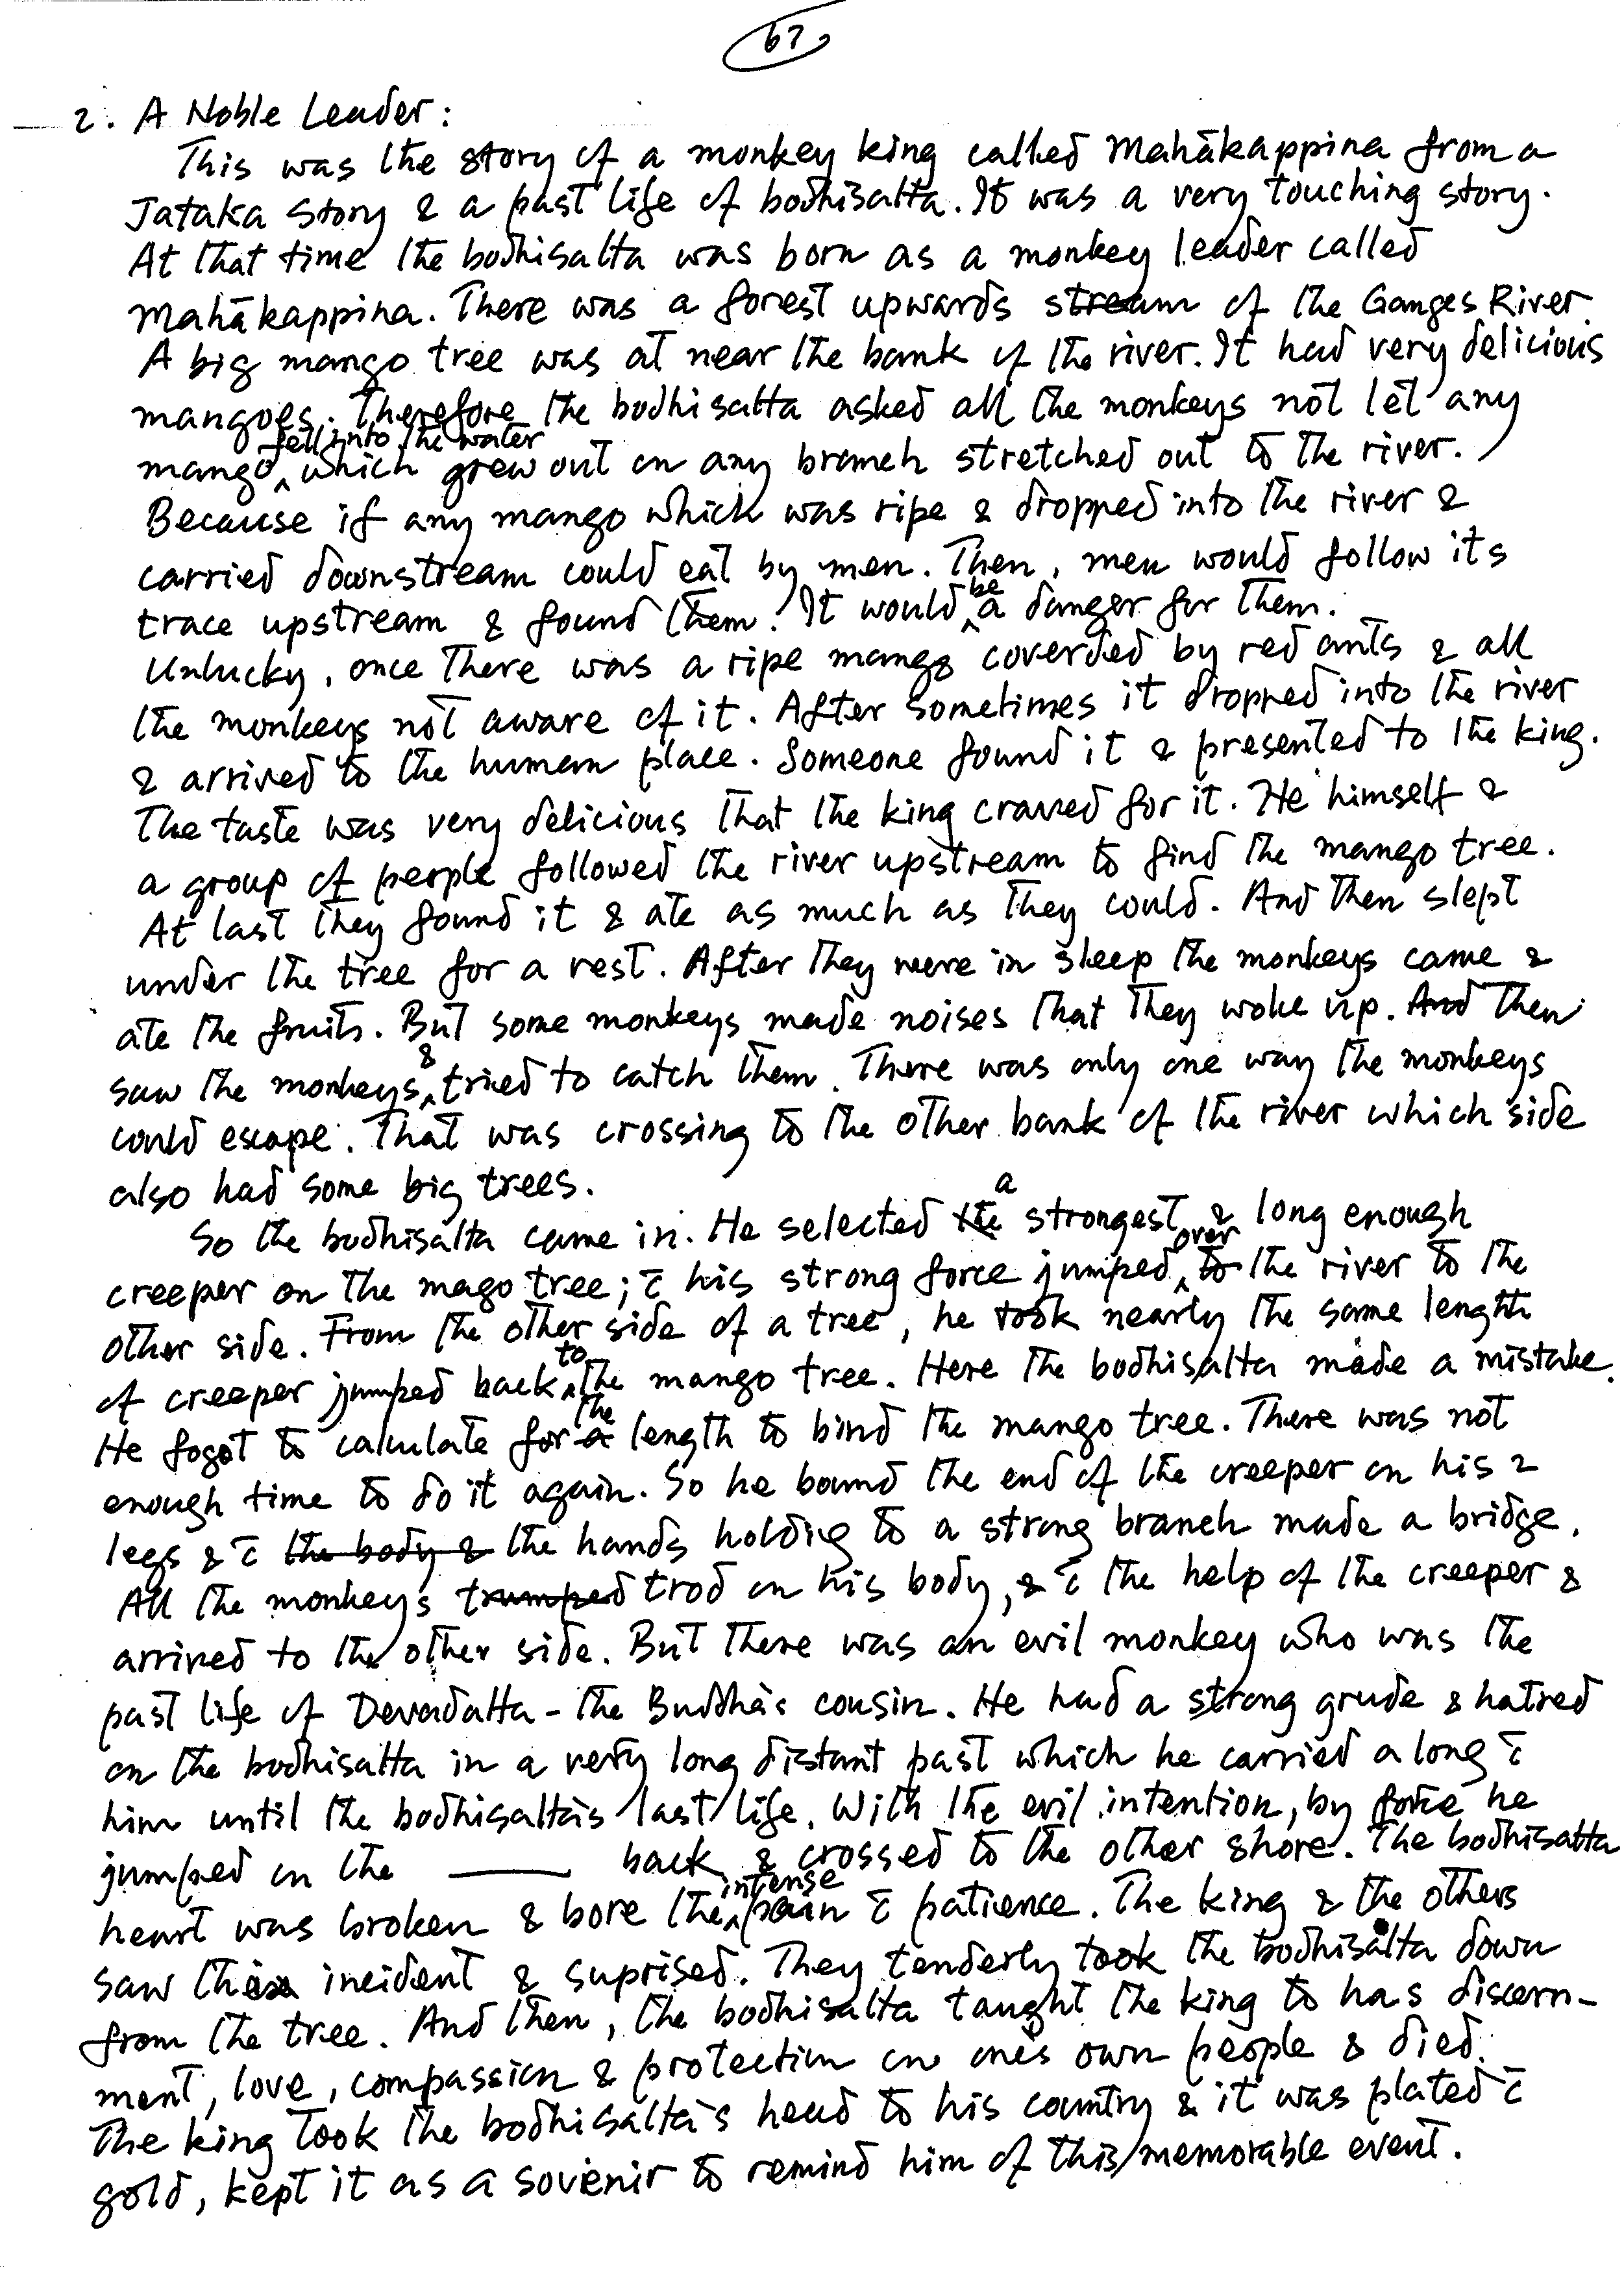 67
2. A Noble Leader:
This was the story of a monkey king called Mahākappina from a
Jataka story & a past life of bodhisatta. It was a very touching story.
At that time the bodhisatta was born as a monkey leader called
Mahākappina. There was a forest upwards stream of the Ganges River.
A big mango tree was at near the bank of the river. It had very delicious
mangoes. Therefore the bodhisatta asked all the monkeys not let any
mango fell into the water which grew out on any branch stretched out to the river.
Because if any mango which was ripe & dropped into the river &
carried downstream could eat by men. Then, men would follow its
trace upstream & found them. It would be a danger for them.
Unlucky, once there was a ripe mango coverded by red ants & all
the monkeys not aware of it. After sometimes it dropped into the river
& arrived to the human place. Someone found it & presented to the king.
The taste was very delicious that the king craved for it. He himself &
a group of people followed the river upstream to find the mango tree.
At last they found it & ate as much as they could. And then slept
under the tree for a rest. After they were in sleep the monkeys came &
ate the fruits. But some monkeys made noises that they woke up. And then
saw the monkeys & tried to catch them. There was only one way the monkeys
could escape. That was crossing to the other bank of the river which side
also had some big trees.
So the bodhisatta came in. He selected the a strongest & long enough
creeper on the mago tree; c̄ his strong force jumped over to the river to the
other side. From the other side of a tree, he took nearly the same length
of creeper jumped back to the mango tree. Here the bodhisatta made a mistake.
He fogot to calculate for a the length to bind the mango tree. There was not
enough time to do it again. So he bound the end of the creeper on his 2
legs & c̄ the body & the hands holdig to a strong branch made a bridge.
All the monkeys trumped trod on his body, & c̄ the help of the creeper &
arrived to the other side. But there was an evil monkey who was the
past life of Devadatta - the Buddha's cousin. He had a strong grude & hatred
on the bodhisatta in a very long distant past which he carried along c̄
him until the bodhisatta's last life. With the evil intention, by force he
jumped on the ______ back & crossed to the other shore. The bodhisatta
heart was broken & bore the intense pain c̄ patience. The king & the others
saw this incident & suprised. They tenderly took the bodhisatta down
from the tree. And then, the bodhisatta taught the king to has discern-
ment, love, compassion & protection on one's own people & died.
The king took the bodhisatta's head to his country & it was plated c̄
gold, kept it as a sovienir to remind him of this memorable event.